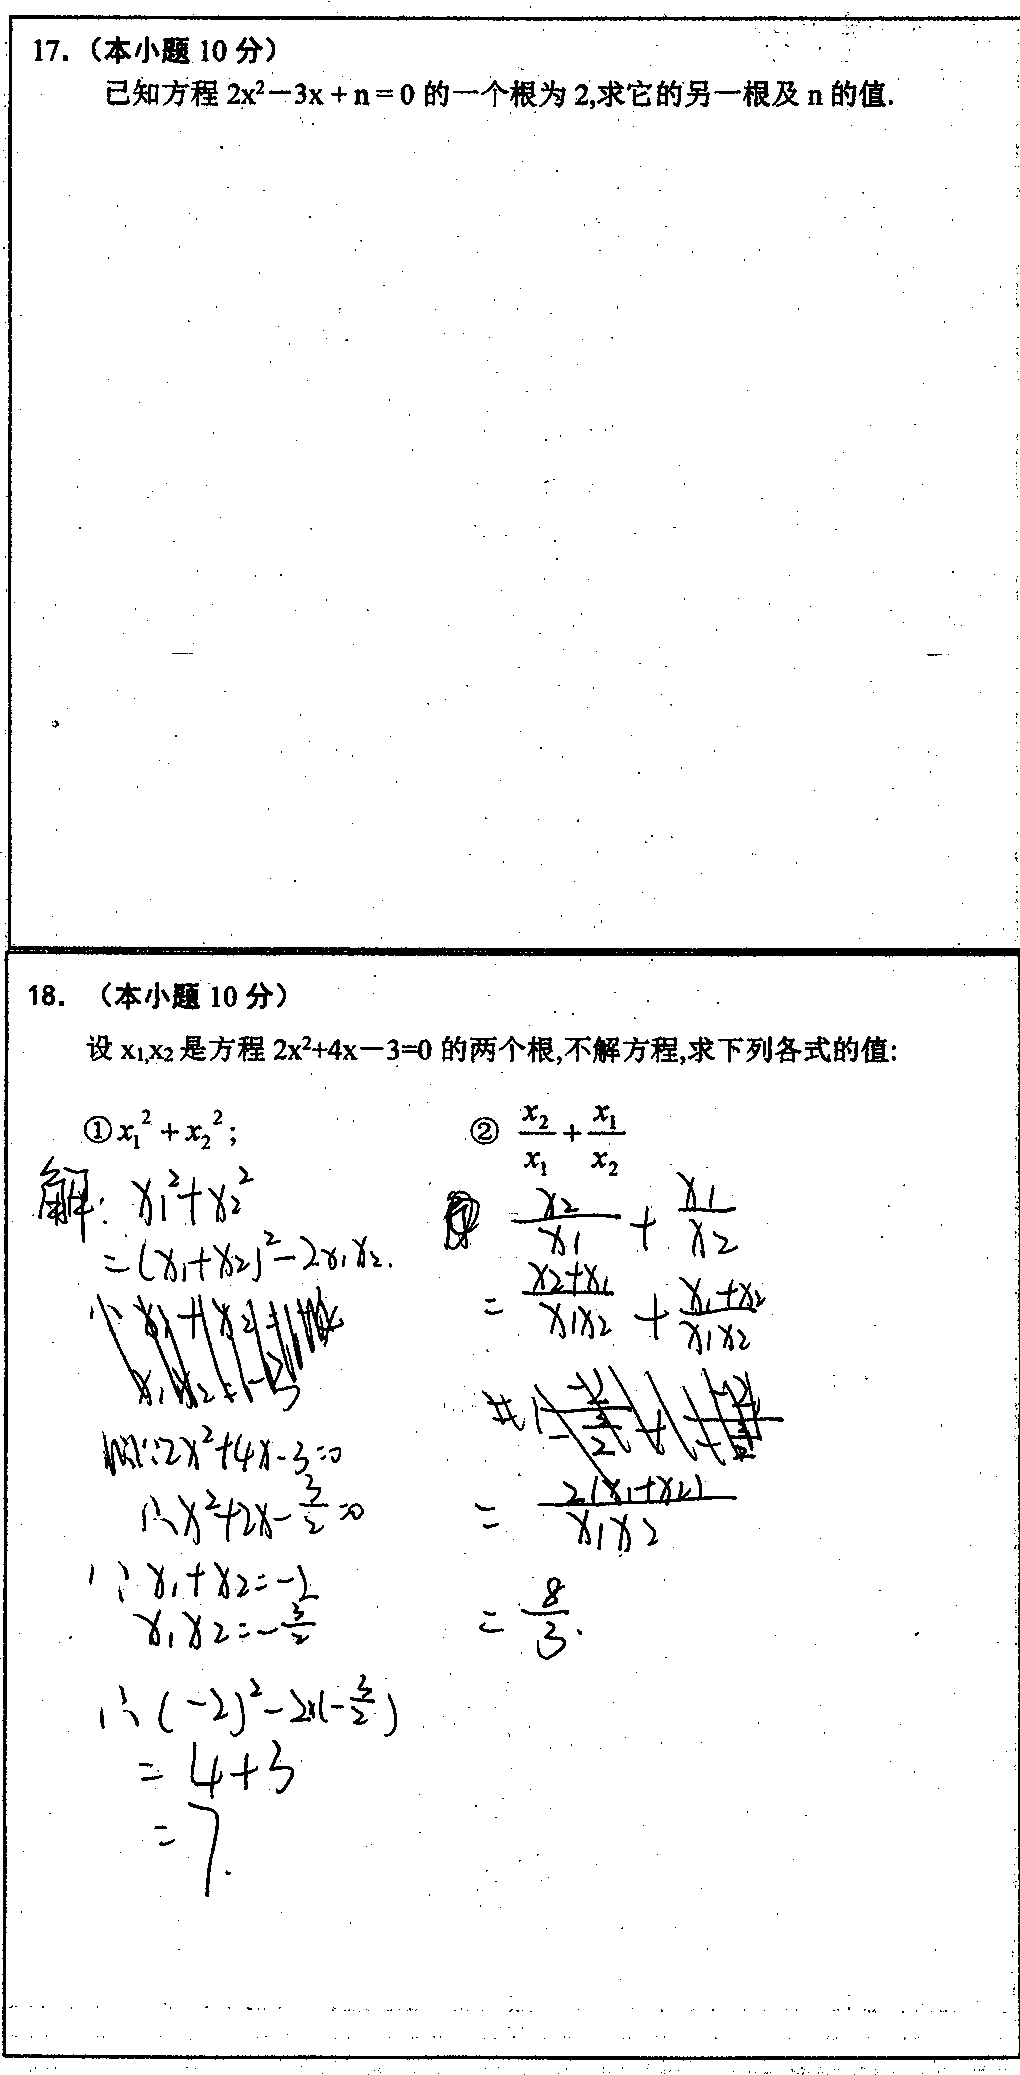 17.（本小题 10 分）
已知方程 2x²－3x + n = 0 的一个根为 2,求它的另一根及 n 的值.
18. （本小题 10 分）
设 x₁,x₂ 是方程 2x²+4x－3=0 的两个根,不解方程,求下列各式的值:
① x₁² + x₂² ;
② x₂/x₁ + x₁/x₂
解: x₁²+x₂²
=(x₁+x₂)²-2x₁x₂.
∵2x²+4x-3=0
∴x²+2x-3/2=0
∵x₁+x₂=-2
x₁x₂=-3/2
∴(-2)²-2×(-3/2)
=4+3
=7.
x₂/x₁ + x₁/x₂
= (x₂+x₁)/(x₁x₂) + (x₁+x₂)/(x₁x₂)
= 2(x₁+x₂)/(x₁x₂)
= 8/3.